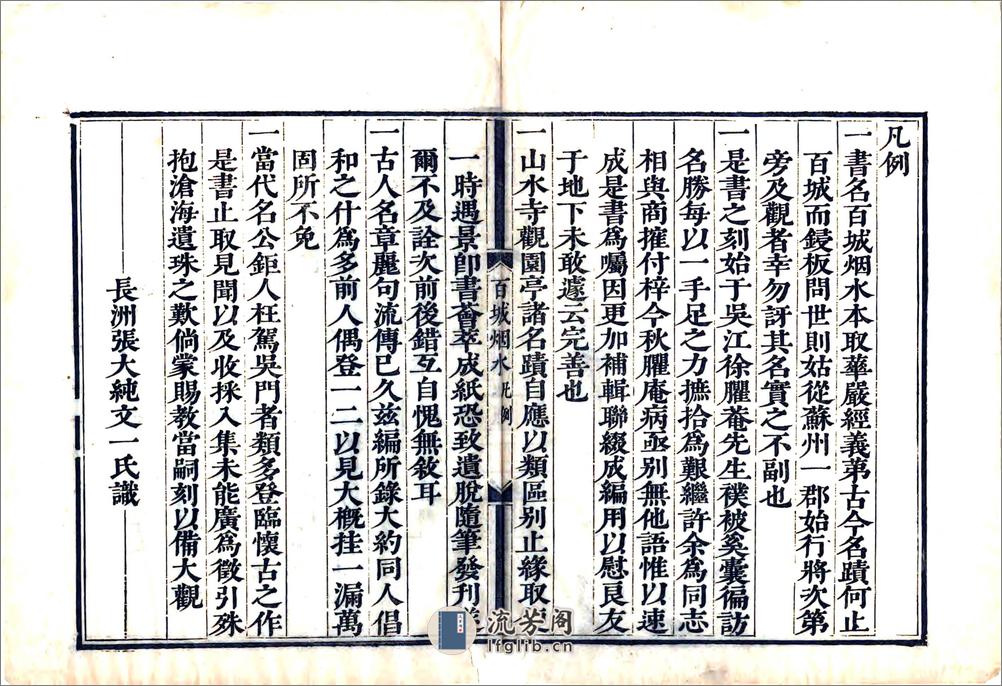 凡例
一書名百城烟水本取華嚴經義弟古今名蹟何止
百城而鋟板問世則姑從蘇州一郡始行將次第
旁及觀者幸勿訝其名實之不副也
一是書之刻始于吳江徐臞菴先生襆被奚囊徧訪
名勝每以一手足之力摭拾為艱繼許余為同志
相與商搉付梓今秋臞庵病亟别無他語惟以速
成是書為囑因更加補輯聯綴成編用以慰良友
于地下未敢遽云完善也
一山水寺觀園亭諸名蹟自應以類區别止緣取
百城烟水 凡例
一時遇景卽書薈萃成紙恐致遺脫隨筆發刊
爾不及詮次前後錯互自愧無敘耳
一古人名章麗句流傳已久兹編所錄大約同人倡
和之什為多前人偶登一二以見大概挂一漏萬
固所不免
一當代名公鉅人枉駕吳門者類多登臨懷古之作
是書止取見聞以及收採入集未能廣為徵引殊
抱滄海遺珠之歎倘蒙賜教當嗣刻以備大觀
長洲張大純文一氏識
流芳阁
lfglib.cn